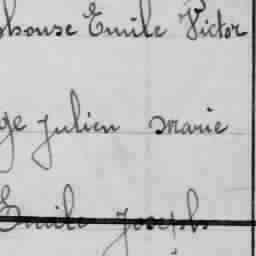 phonse Emile Victor
ge Julien Marie
Emile Joseph